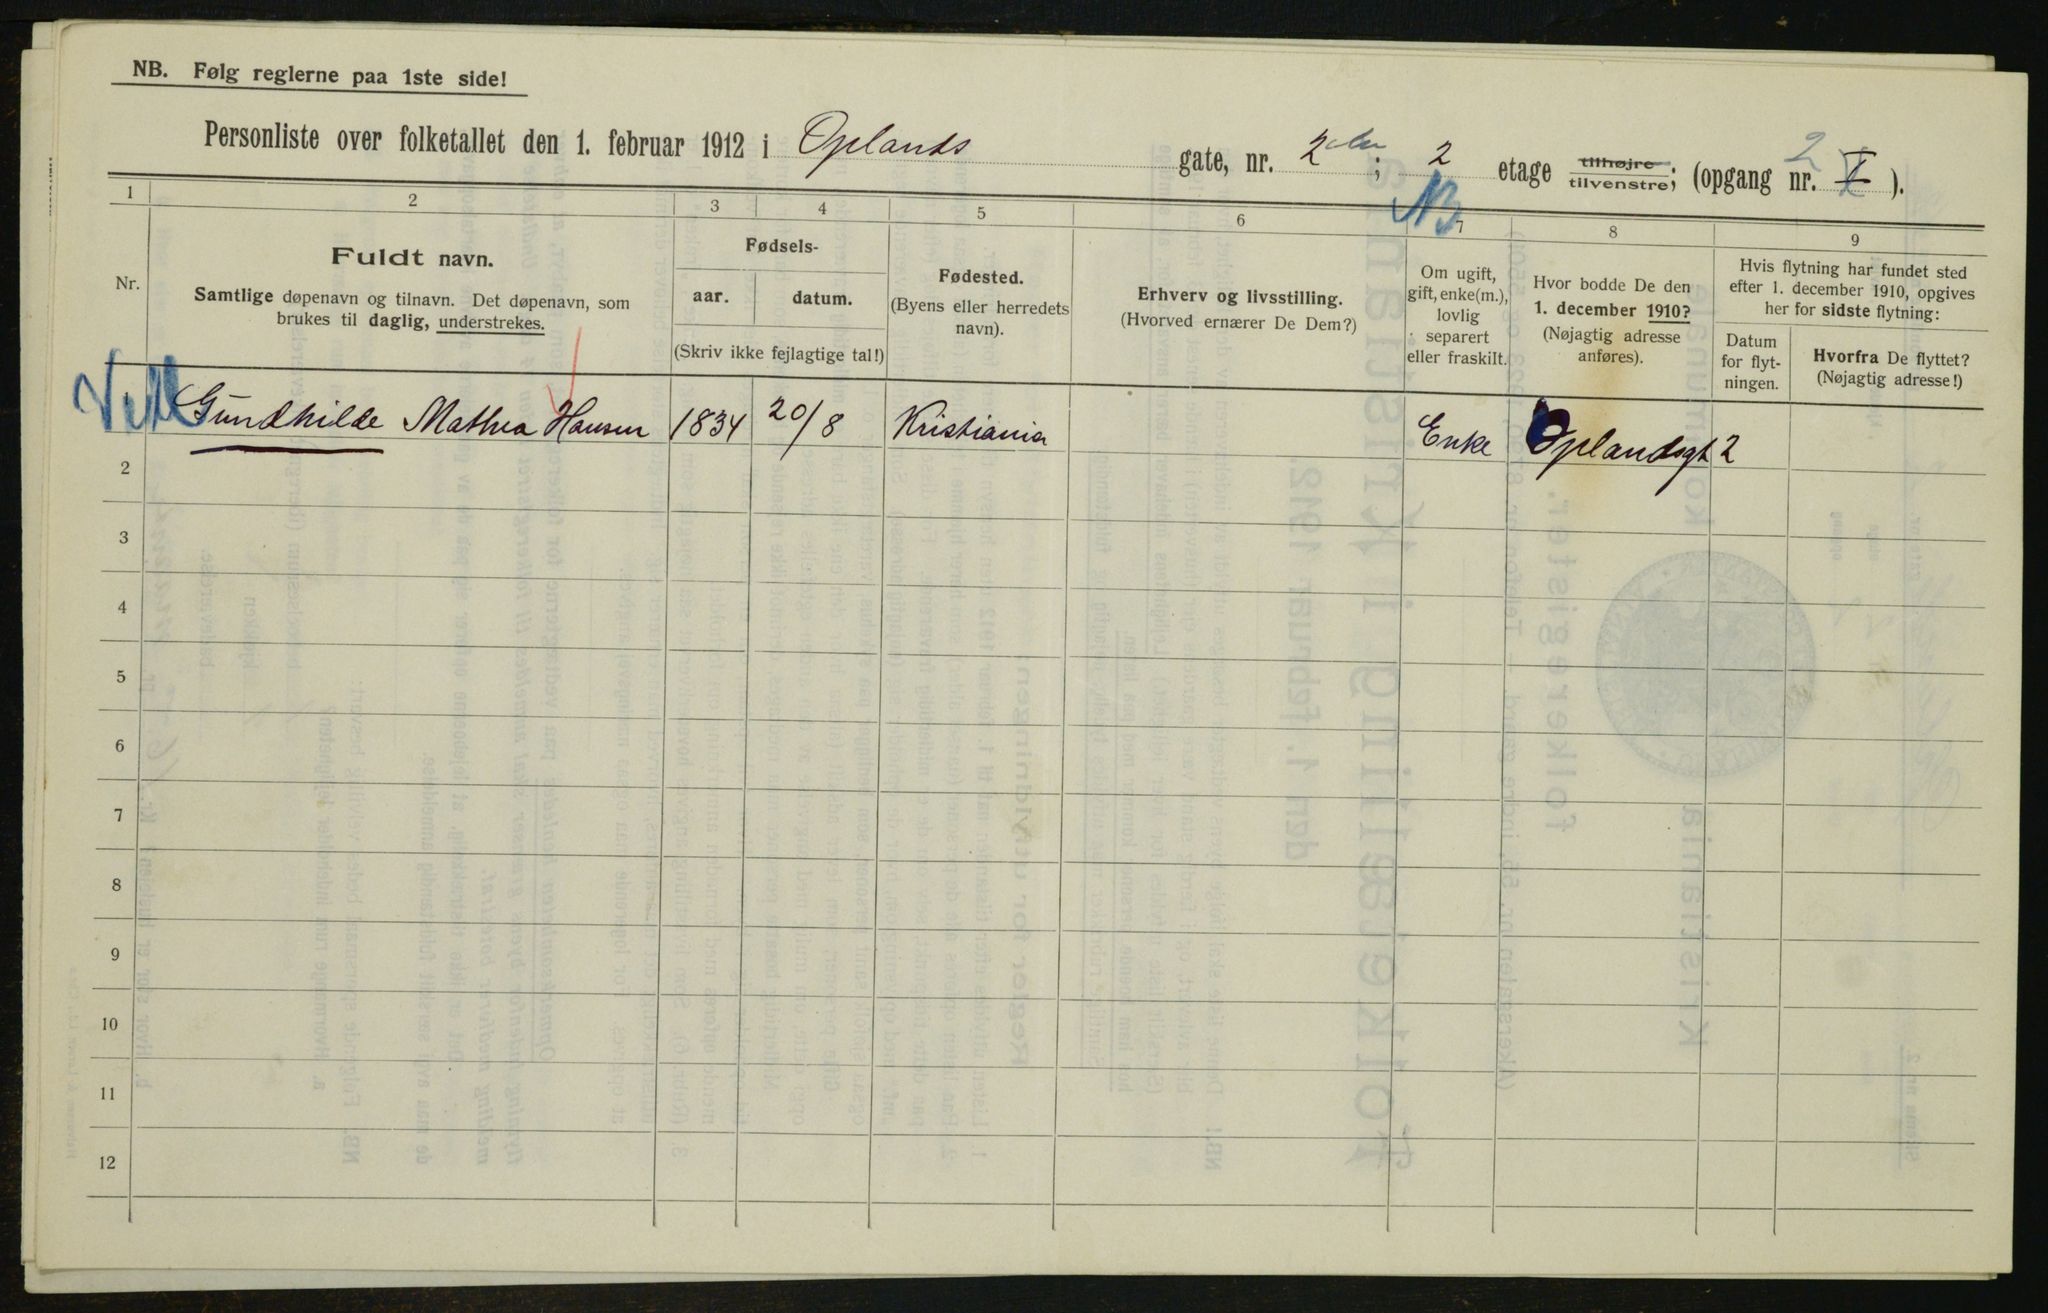 NB. Følg reglerne paa 1ste side!
Personliste over folketallet den 1. februar 1912 i Oplands gate, nr. 2; 2 etage tilhøjre tilvenstre; (opgang nr. 2 I).
NB
1 2 3 4 5 6 7 8 9
Nr.
Fuldt navn.
Samtlige døpenavn og tilnavn. Det døpenavn, som
brukes til daglig, understrekes.
Fødsels-
aar. datum.
(Skriv ikke fejlagtige tal!)
Fødested.
(Byens eller herredets
navn).
Erhverv og livsstilling.
(Hvorved ernærer De Dem?)
Om ugift,
gift, enke(m.),
lovlig
separert
eller fraskilt.
Hvor bodde De den
1. december 1910?
(Nøjagtig adresse
anføres).
Hvis flytning har fundet sted
efter 1. december 1910, opgives
her for sidste flytning:
Datum
for flyt-
ningen.
Hvorfra De flyttet?
(Nøjagtig adresse!)
Gundhilde Mathea Hansen 1834 20/8 Kristiania Enke Oplandsgt 2
2
3
4
5
6
7
8
9
10
11
12